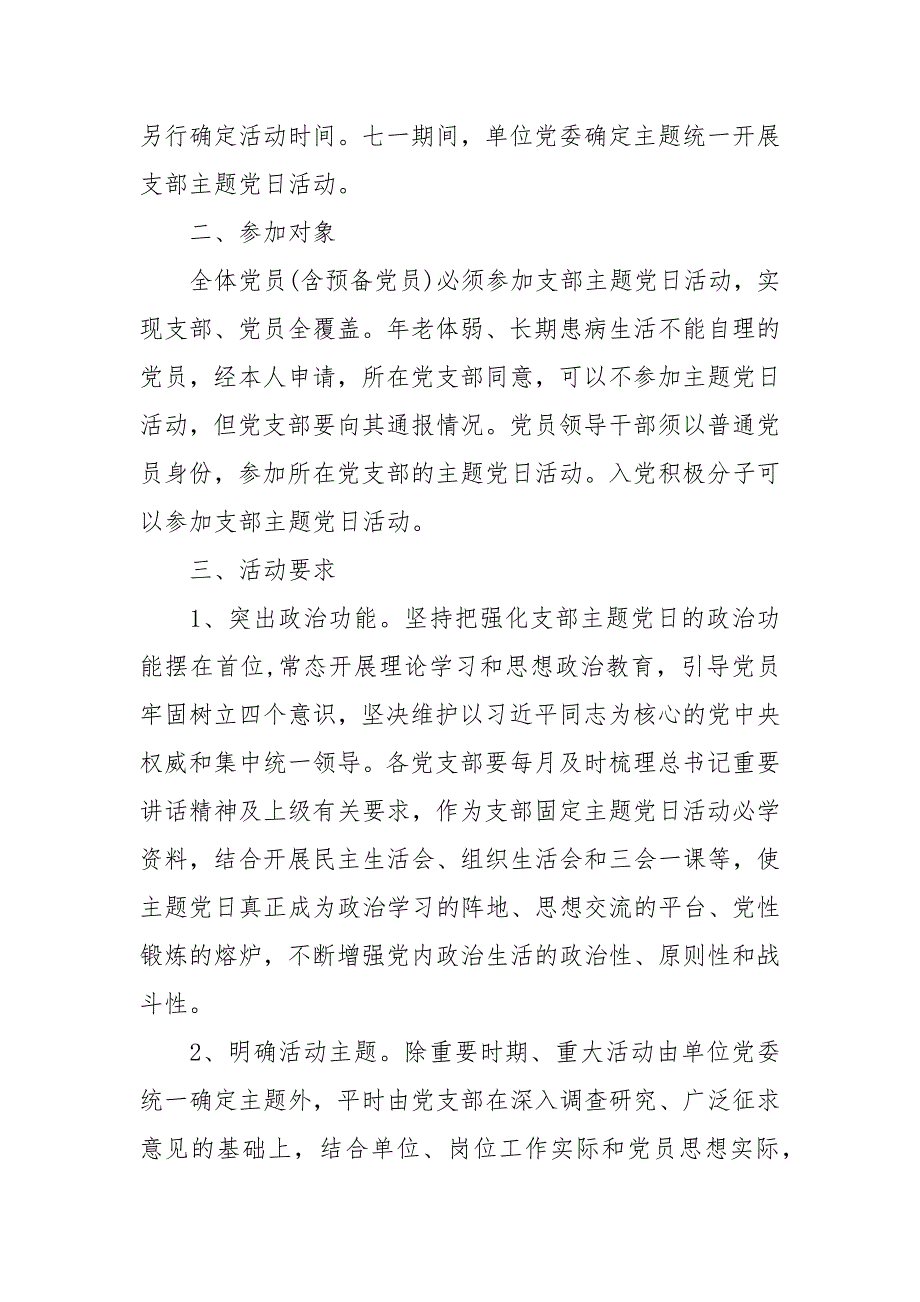 另行确定活动时间。七一期间，单位党委确定主题统一开展
支部主题党日活动。
二、参加对象
全体党员(含预备党员)必须参加支部主题党日活动，实
现支部、党员全覆盖。年老体弱、长期患病生活不能自理的
党员，经本人申请，所在党支部同意，可以不参加主题党日
活动，但党支部要向其通报情况。党员领导干部须以普通党
员身份，参加所在党支部的主题党日活动。入党积极分子可
以参加支部主题党日活动。
三、活动要求
1、突出政治功能。坚持把强化支部主题党日的政治功
能摆在首位,常态开展理论学习和思想政治教育，引导党员
牢固树立四个意识，坚决维护以习近平同志为核心的党中央
权威和集中统一领导。各党支部要每月及时梳理总书记重要
讲话精神及上级有关要求，作为支部固定主题党日活动必学
资料，结合开展民主生活会、组织生活会和三会一课等，使
主题党日真正成为政治学习的阵地、思想交流的平台、党性
锻炼的熔炉，不断增强党内政治生活的政治性、原则性和战
斗性。
2、明确活动主题。除重要时期、重大活动由单位党委
统一确定主题外，平时由党支部在深入调查研究、广泛征求
意见的基础上，结合单位、岗位工作实际和党员思想实际，